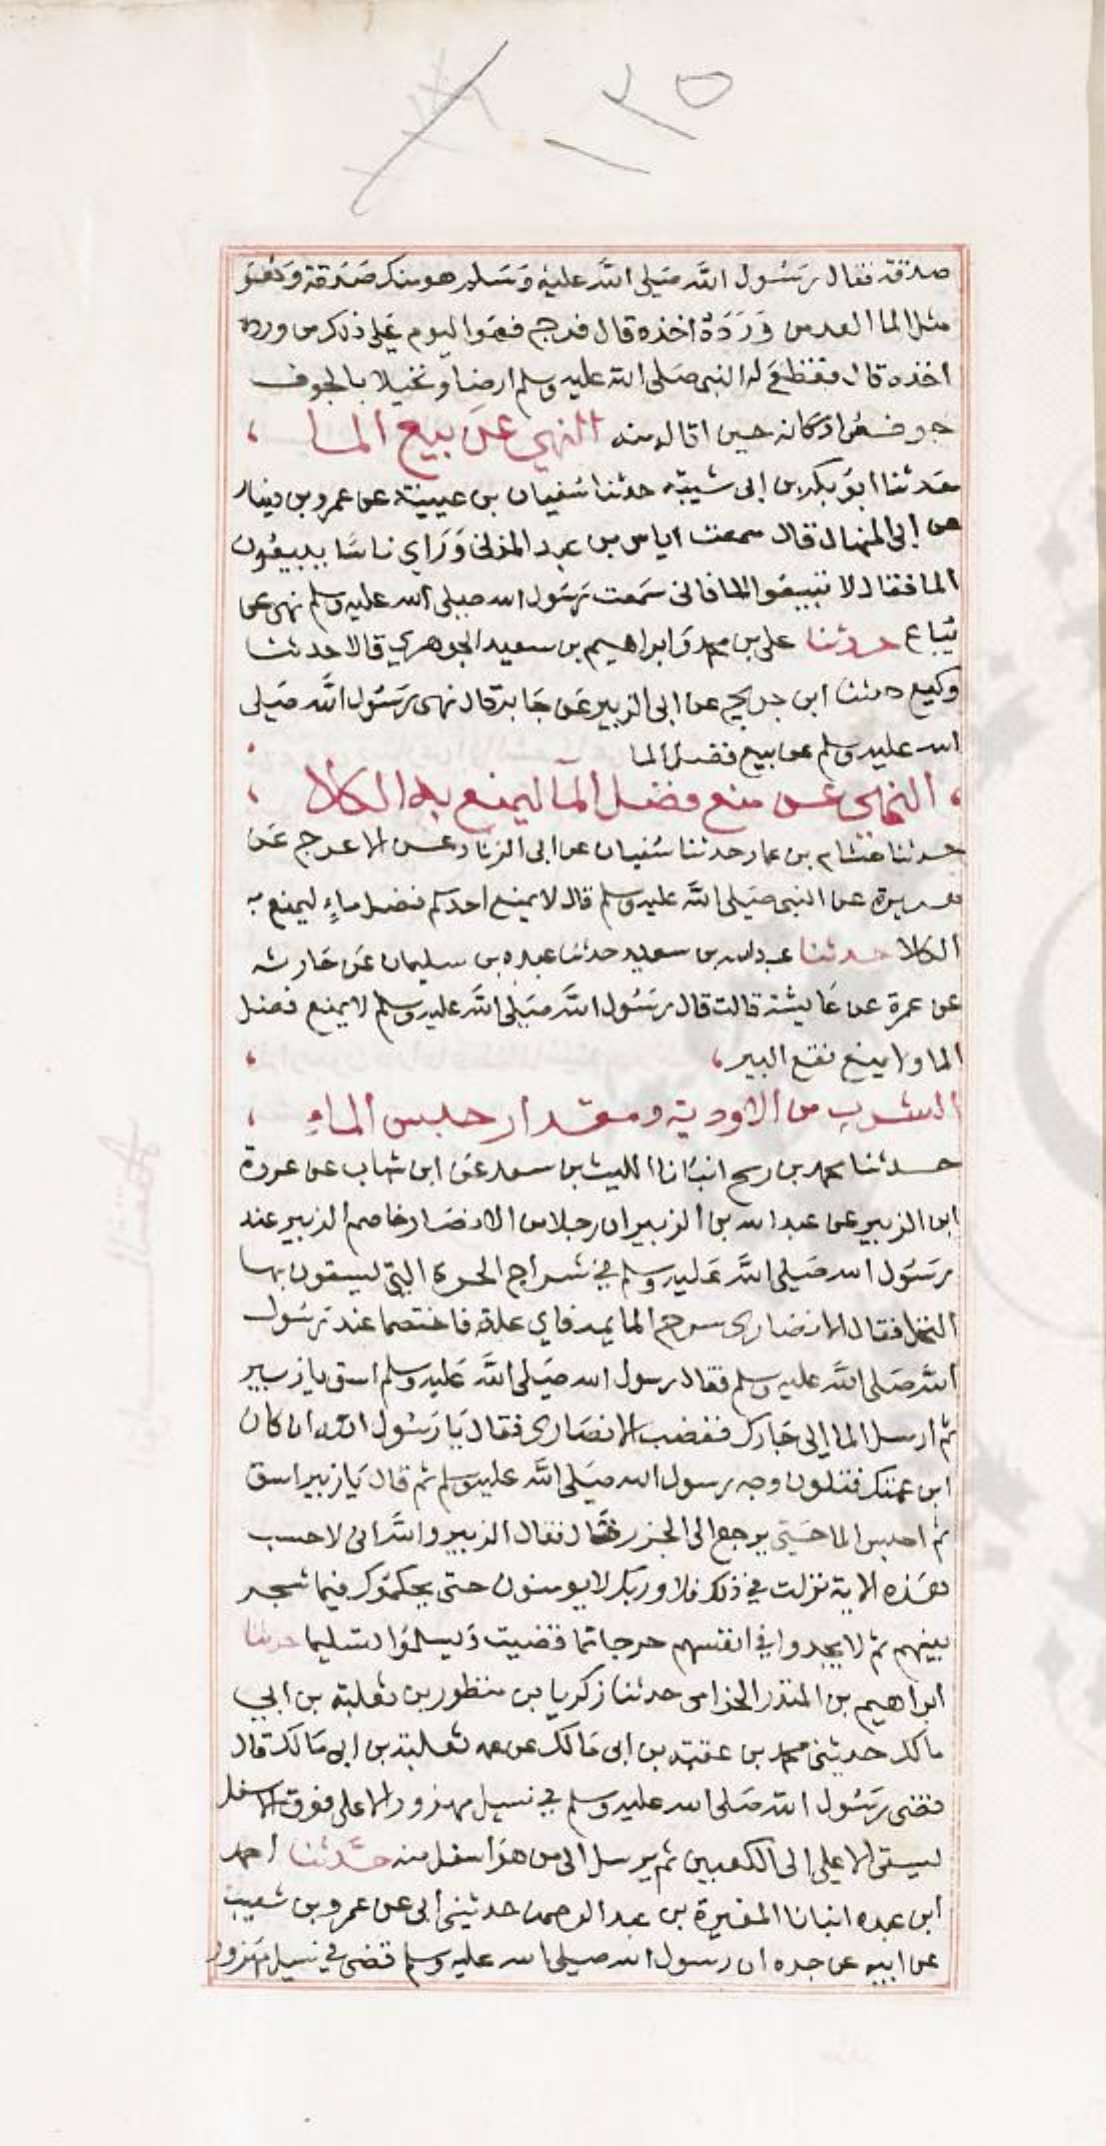 ١٢٥
صدقة فقال رسول الله صلى الله عليه وسلم هو منك صدقة وهو
مثل الما العد من وردة اخذه قال فرج فهو اليوم على ذلك من ورده
اخذه قال فقطع له النبي صلى الله عليه وسلم ارضا ونخيلا بالجوف
جوف مراد كانه حين اقاله منه النهي عن بيع الما
حدثنا ابو بكر بن ابى شيبة حدثنا سفيان بن عيينة عن عمرو بن دينار
عن ابى المنهال قال سمعت اياس بن عبد المزني وراي ناسا يبيعون
الما فقال لا تبيعوا الما فانى سمعت رسول الله صلى الله عليه وسلم نهى عن
تباع حدثنا على بن محمد وابراهيم بن سعيد الجوهري قالا حدثنا
وكيع حدثنا ابن جريج عن ابى الزبير عن جابر قال نهى رسول الله صلى
الله عليه وسلم عن بيع فضل الما
النهي عن منع فضل المآ ليمنع به الكلا
حدثنا هشام بن عمار حدثنا سفيان عن ابى الزناد عن الاعرج عن
هريرة عن النبى صلى الله عليه وسلم قال لا يمنع احدكم فضل ماء ليمنع به
الكلا حدثنا عبد الله بن سعيد حدثنا عبده بن سليمان عن حارثه
عن عمرة عن عايشة قالت قال رسول الله صلى الله عليه وسلم لا يمنع فضل
الما ولا يمنع نقع البير
الشرب من الاودية ومقدار حبس الماء
حدثنا محمد بن رمح انبانا الليث بن سعد عن ابن شهاب عن عروة
ابن الزبير عن عبد الله بن الزبير ان رجلا من الانصار خاصم الزبير عند
رسول الله صلى الله عليه وسلم في شراج الحرة التى يسقون بها
النخل فقال الانصارى سرح الما يمر فابي عليه فاختصما عند رسول
الله صلى الله عليه وسلم فقال رسول الله صلى الله عليه وسلم اسق يا زبير
ثم ارسل الما الى جارك فغضب الانصارى فقال يا رسول الله ان كان
ابن عمتك فتلون وجه رسول الله صلى الله عليه وسلم ثم قال يا زبير اسق
ثم احبس الما حتى يرجع الى الجدر قال فقال الزبير والله انى لاحسب
هذه الاية نزلت في ذلك فلا وربك لا يومنون حتى يحكموك فيما شجر
بينهم ثم لا يجدوا في انفسهم حرجا مما قضيت ويسلموا تسليما حدثنا
ابراهيم بن المنذر الحزامى حدثنا زكريا بن منظور بن ثعلبة بن ابي
مالك حدثنى محمد بن عقبة بن ابى مالك عن عمه ثعلبة بن ابى مالك قال
قضى رسول الله صلى الله عليه وسلم في سيل مهزور الاعلى فوق الاسفل
يسقى الاعلى الى الكعبين ثم يرسل الى من هو اسفل منه حدثنا احمد
ابن عبده انبانا المغيرة بن عبد الرحمن حدثنى ابى عن عمرو بن شعيب
عن ابيه عن جده ان رسول الله صلى الله عليه وسلم قضى في سيل مهزور